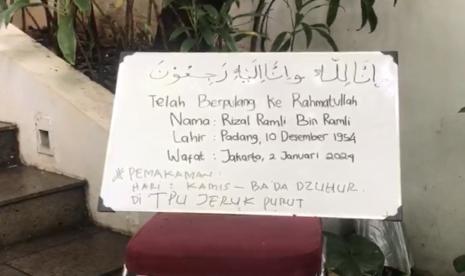 إنا لله وإنا إليه راجعون
Telah Berpulang Ke Rahmatullah
Nama : Rizal Ramli Bin Ramli
Lahir : Padang, 10 Desember 1954
Wafat : Jakarta, 2 Januari 2024
* PEMAKAMAN :
HARI : KAMIS – BA'DA DZUHUR.
DI TPU JERUK PURUT